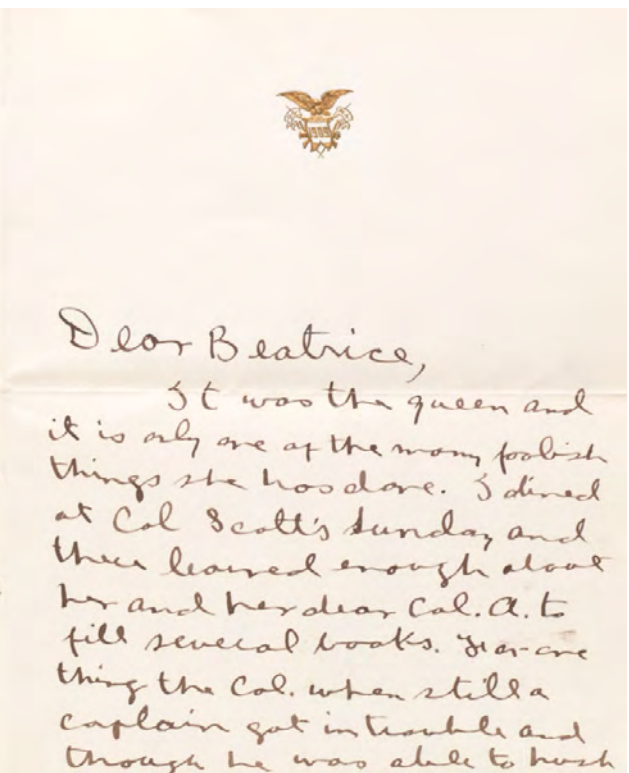 1909
Dear Beatrice,
It was the queen and
it is only one of the many foolish
things she has done. I dined
at Col Scott's Sunday and
there learned enough about
her and her dear Col. A. to
fill several books. For one
thing the Col. when still a
captain got in trouble and
though he was able to hush